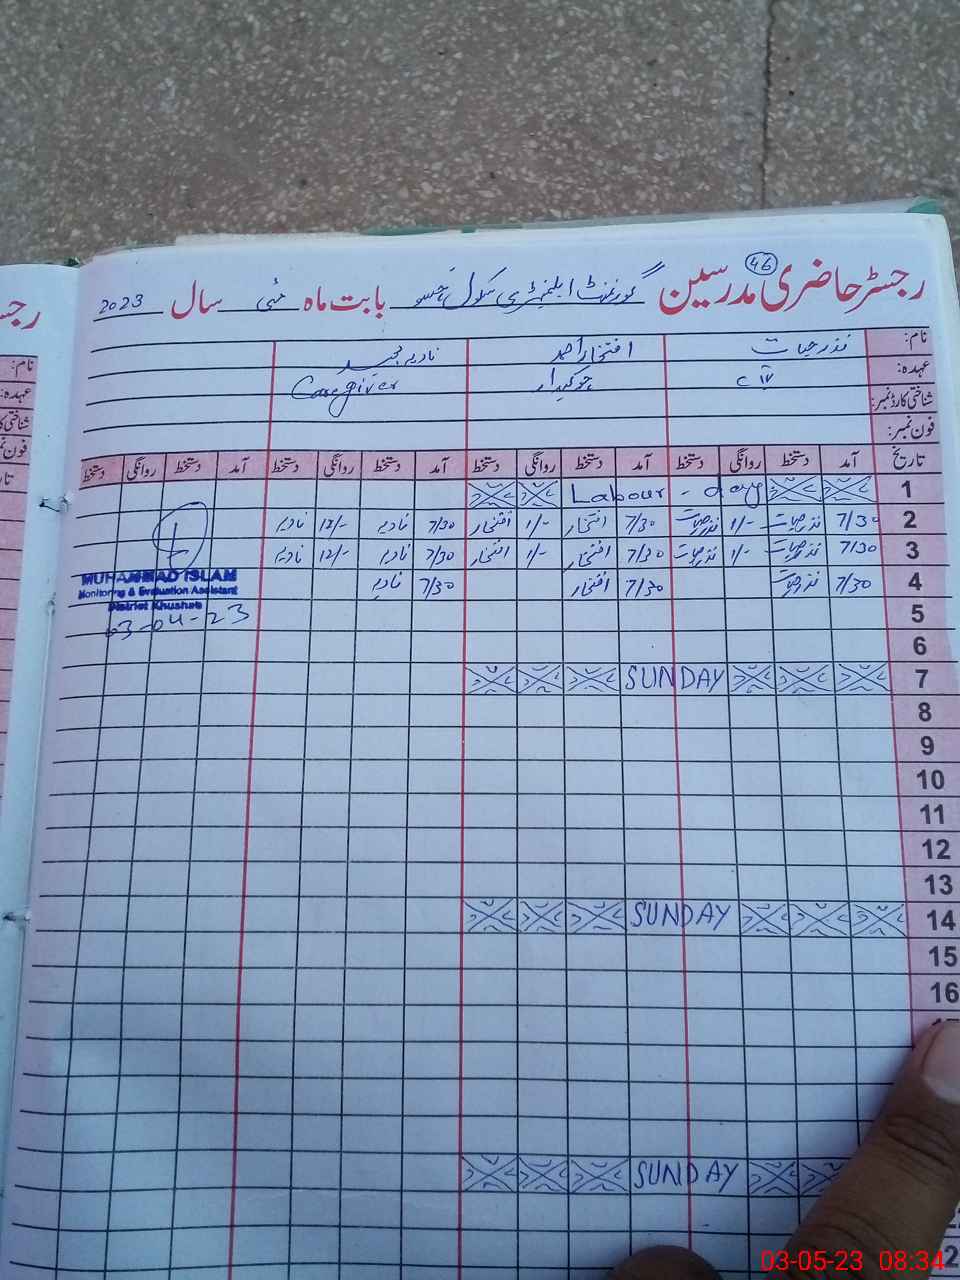 رجسٹر حاضری مدرسین 46 گورنمنٹ ایلیمنٹری سکول بابت ماہ مئی سال 2023
نام: نذر حیات افتخار احمد نادیہ
عہدہ: چوکیدار Caregiver
شناختی کارڈ نمبر:
فون نمبر:
تاریخ آمد دستخط روانگی دستخط آمد دستخط روانگی دستخط آمد دستخط روانگی دستخط آمد دستخط روانگی دستخط
1 Labour - day
2 7/30 نذر حیات 1/- نذر حیات 7/30 افتخار 1/- افتخار 7/30 نادیہ 12/- نادیہ
3 7/30 نذر حیات 1/- نذر حیات 7/30 افتخار 1/- افتخار 7/30 نادیہ 12/- نادیہ
4 7/30 نذر حیات 7/30 افتخار 7/30 نادیہ
MUHAMMAD ISLAM
Monitoring & Evaluation Assistant
District Khushab
03-04-23
5
6
7 SUNDAY
8
9
10
11
12
13
14 SUNDAY
15
16
SUNDAY
03-05-23 08:34